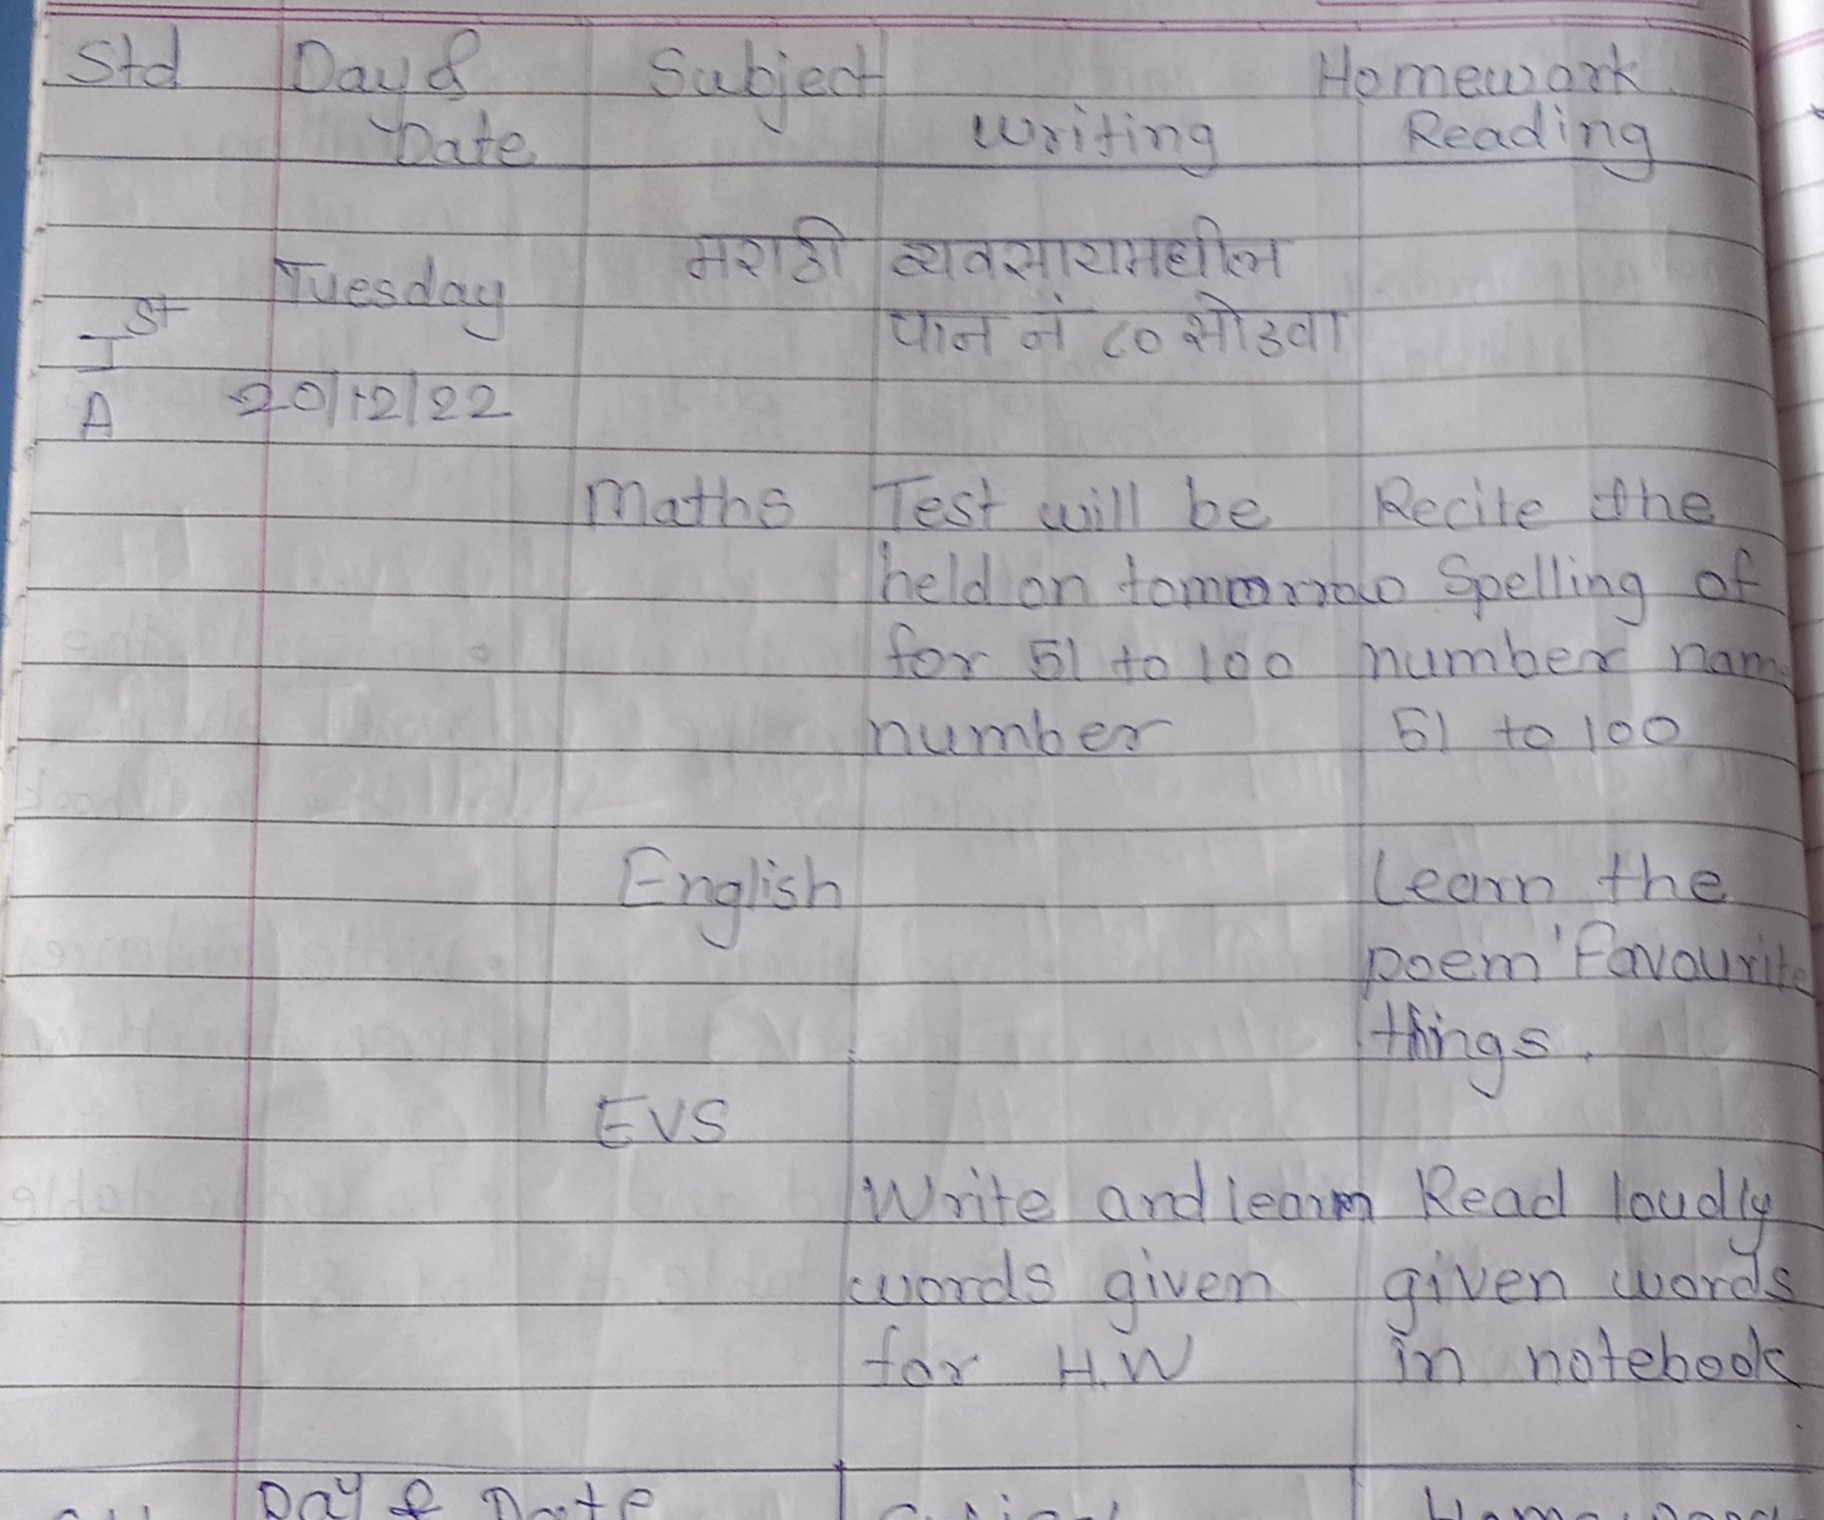 Std Day & Subject Homework
Date Writing Reading
मराठी व्यवसायामधील
Tuesday
Ist पान नं ८० सोडवा
A 20/12/22
Maths Test will be Recite the
held on tomorrow Spelling of
for 51 to 100 number name
number 51 to 100
English Learn the
poem 'Favourite
things.
EVS
Write and learn Read loudly
words given given words
for H.W in notebook
Day & Date